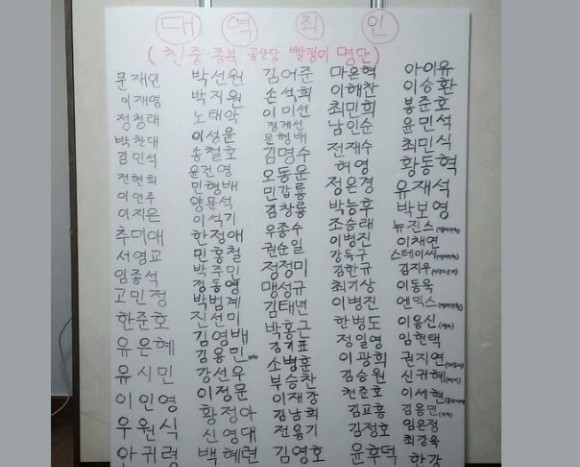 대역죄인
(친중·종북 공산당 빨갱이 명단)
문재인
이재명
정청래
박찬대
김민석
전현희
이언주
이지은
추미애
서영교
임종석
고민정
한준호
유은혜
유시민
이인영
우원식
안귀령
박선원
박지원
노태악
이성윤
송철호
윤건영
민형배
양문석
이석기
한정애
민홍철
박주민
정동영
박범계
진선미
김영배
김용민
강선우
이정문
황정아
신영대
백혜련
김어준
손석희
이미선
정계선
문형배
김명수
오동운
민갑룡
김창룡
우종수
권순일
정정미
맹성규
김태년
박홍근
김기표
소병훈
부승찬
이재강
김남희
전용기
김영호
마은혁
이해찬
최민희
남인순
전재수
허영
정은경
박능후
조승래
이병진
강득구
김한규
최기상
이병진
한병도
정일영
이광희
김승원
천준호
김교흥
김정호
윤후덕
아이유
이승환
봉준호
윤민석
최민식
황동혁
유재석
박보영
뉴진스
이채연
스테이씨
김지우
이동욱
엔믹스
이용신
임현택
권지연
신귀혜
이서현
김용민
임은정
최강욱
한강